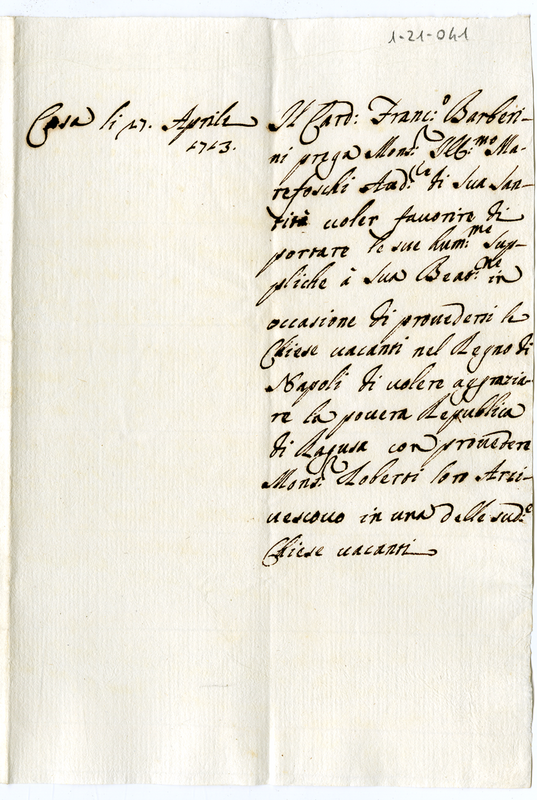 1-21-041
Casa li 27. Aprile
1713.
Il Card: Franc:º Barberi-
ni prega Mons:r Ill:mo Ma-
refoschi Aud:re di Sua San-
tità uoler fauorire di
portare le sue hum:me Sup-
pliche à Sua Beat:ne in
occasione di prouedersi le
Chiese uacanti nel Regno di
Napoli di uolere aggrazia-
re la pouera Republica
di Ragusa con prouedere
Mons:r Roberti loro Arci-
uescouo in una delle sud:e
Chiese uacanti